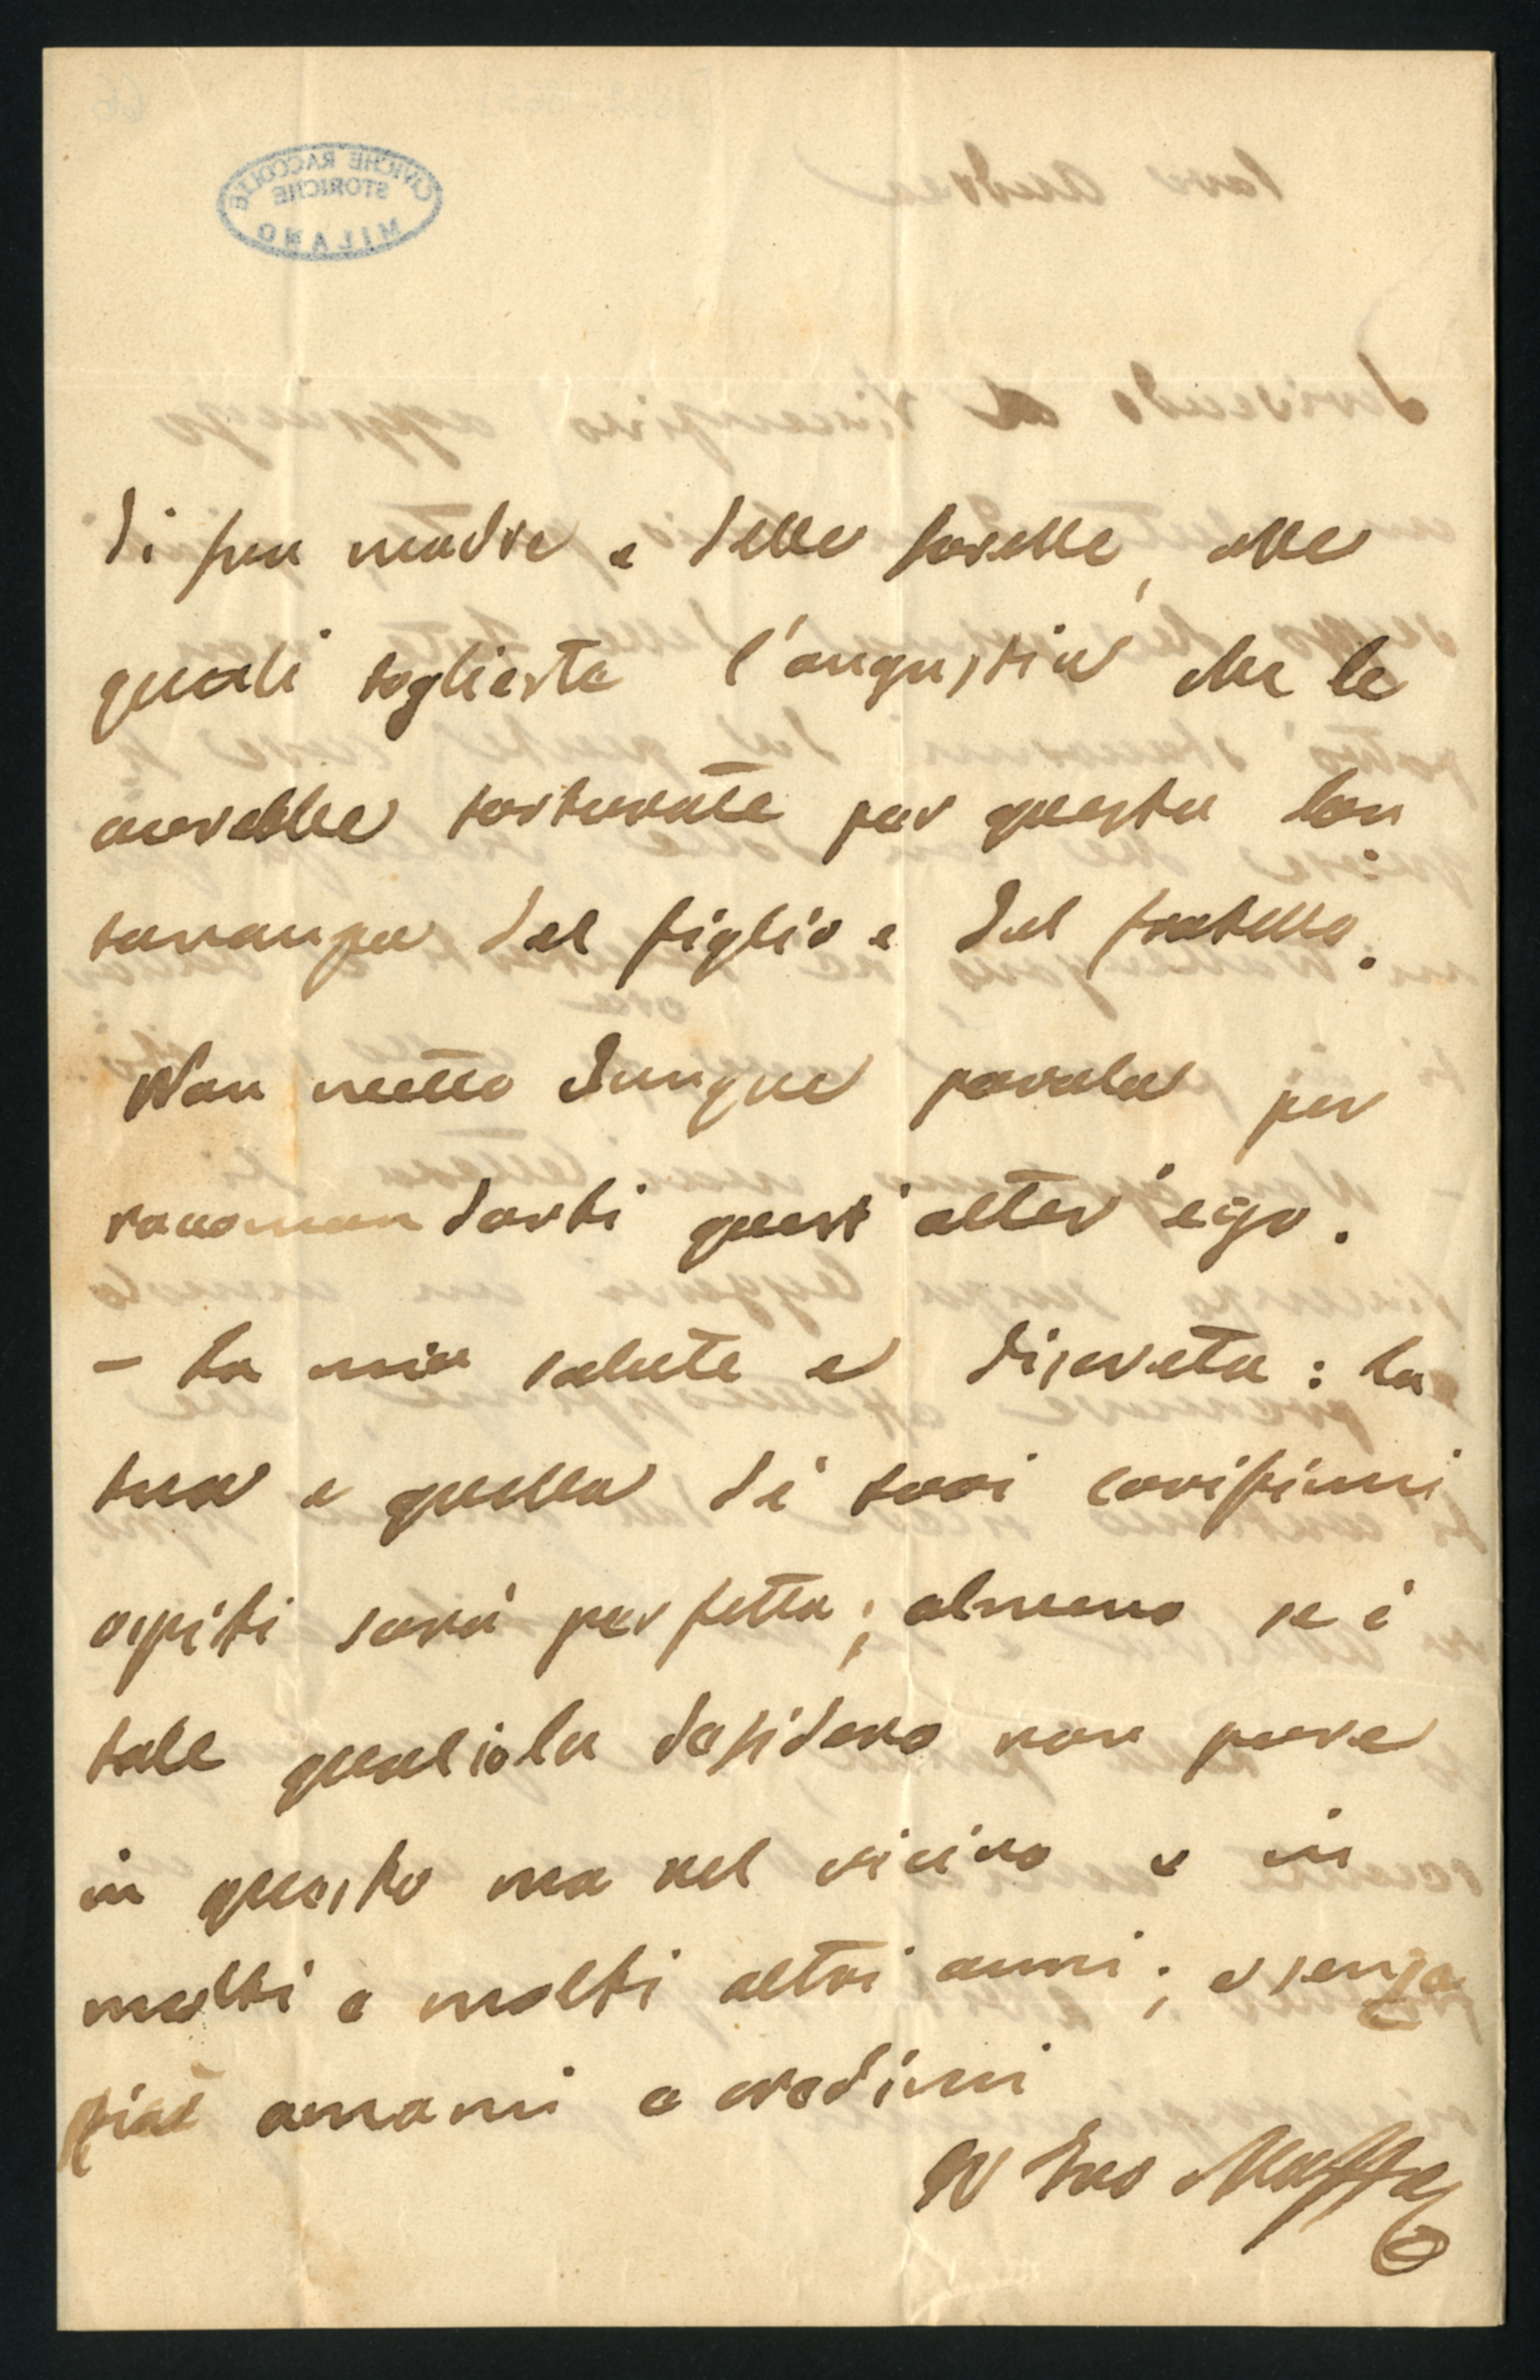 di sua madre e delle sorelle, alle
quali toglieste l'angustia che le
avrebbe torturate per questa lon
tananza del figlio e del fratello.
Non metto dunque parola per
raccomandarti quest'alter ego.
– La mia salute e discreta: la
tua e quella di tuoi carissimi
ospiti sarà perfetta; almeno se è
tale qual io la desidero non pure
in questo ma nel vicino e in
molti e molti altri anni; e senza
più amami e credimi
Il tuo Maffei
CIVICHE RACCOLTE
STORICHE
MILANO